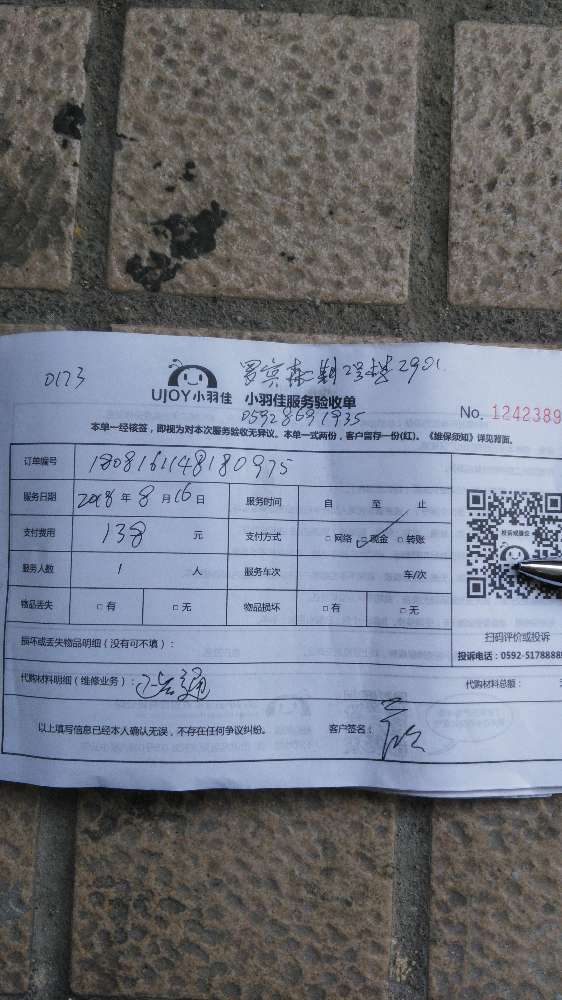 0173
罗宾森 2号楼2901
UJOY小羽佳 小羽佳服务验收单
05928691935
No. 1242389
本单一经核签，即视为对本次服务验收无异议。本单一式两份，客户留存一份(红)。《维保须知》详见背面。
订单编号 1808161148180975
服务日期 2018年8月16日 服务时间 自 至 止
支付费用 138 元 支付方式 □网络 □现金 □转账
服务人数 1 人 服务车次 车/次
物品丢失 □有 □无 物品损坏 □有 □无
投诉或建议
扫码评价或投诉
投诉电话：0592-5178888
损坏或丢失物品明细（没有可不填）：
代购材料明细（维修业务）： 代购材料总额：
以上填写信息已经本人确认无误，不存在任何争议纠纷。 客户签名：